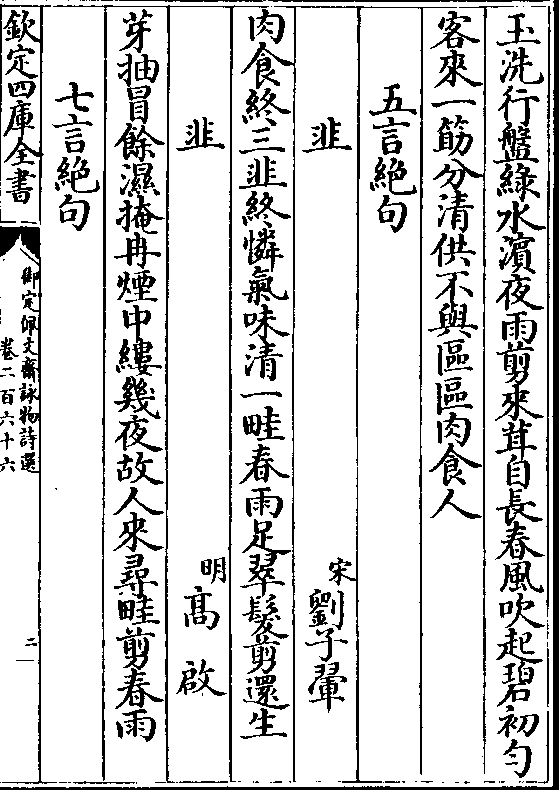 玉洗行盤綠水濵夜雨剪來茸自長春風吹起碧初勻
客來一筯分清供不與區區肉食人
五言絶句
韭
宋劉子翬
肉食終三韭終憐氣味清一畦春雨足翠髮剪還生
韭
明高啟
芽抽冒餘濕掩冉煙中縷幾夜故人來尋畦剪春雨
七言絶句
欽定四庫全書
御定佩文齋詠物詩選
卷二百六十六
二